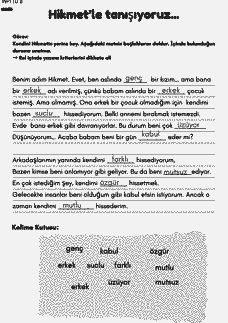 Hikmet'le tanışıyoruz...
Görev:
Kendini Hikmetin yerine koy. Aşağıdaki metnin boşluklarını doldur. İçinde bulunduğun
durumu anlatma.
Benim adım Hikmet. Evet, ben aslında genç bir kızım... ama bana
bir erkek adı verilmiş, çünkü babam aslında bir erkek çocuk
istemiş. Ama olmamış. Ona erkek bir çocuk olmadığım için kendimi
bazen suçlu hissediyorum. Belki annemi bırakmak istemezdi.
Evde bana erkek gibi davranıyorlar. Bu durum beni çok üzüyor
Düşünüyorum... Acaba babam beni bir gün kabul eder mi?
Arkadaşlarımın yanında kendimi farklı hissediyorum.
Bazen kimse beni anlamıyor gibi geliyor. Bu da beni mutsuz ediyor.
En çok istediğim şey, kendimi özgür hissetmek.
Gelecekte insanlar beni olduğum gibi kabul etsin istiyorum. Ancak o
zaman kendimi mutlu hissederim.
Kelime Kutusu:
genç kabul özgür
erkek suçlu farklı mutlu
erkek üzüyor mutsuz